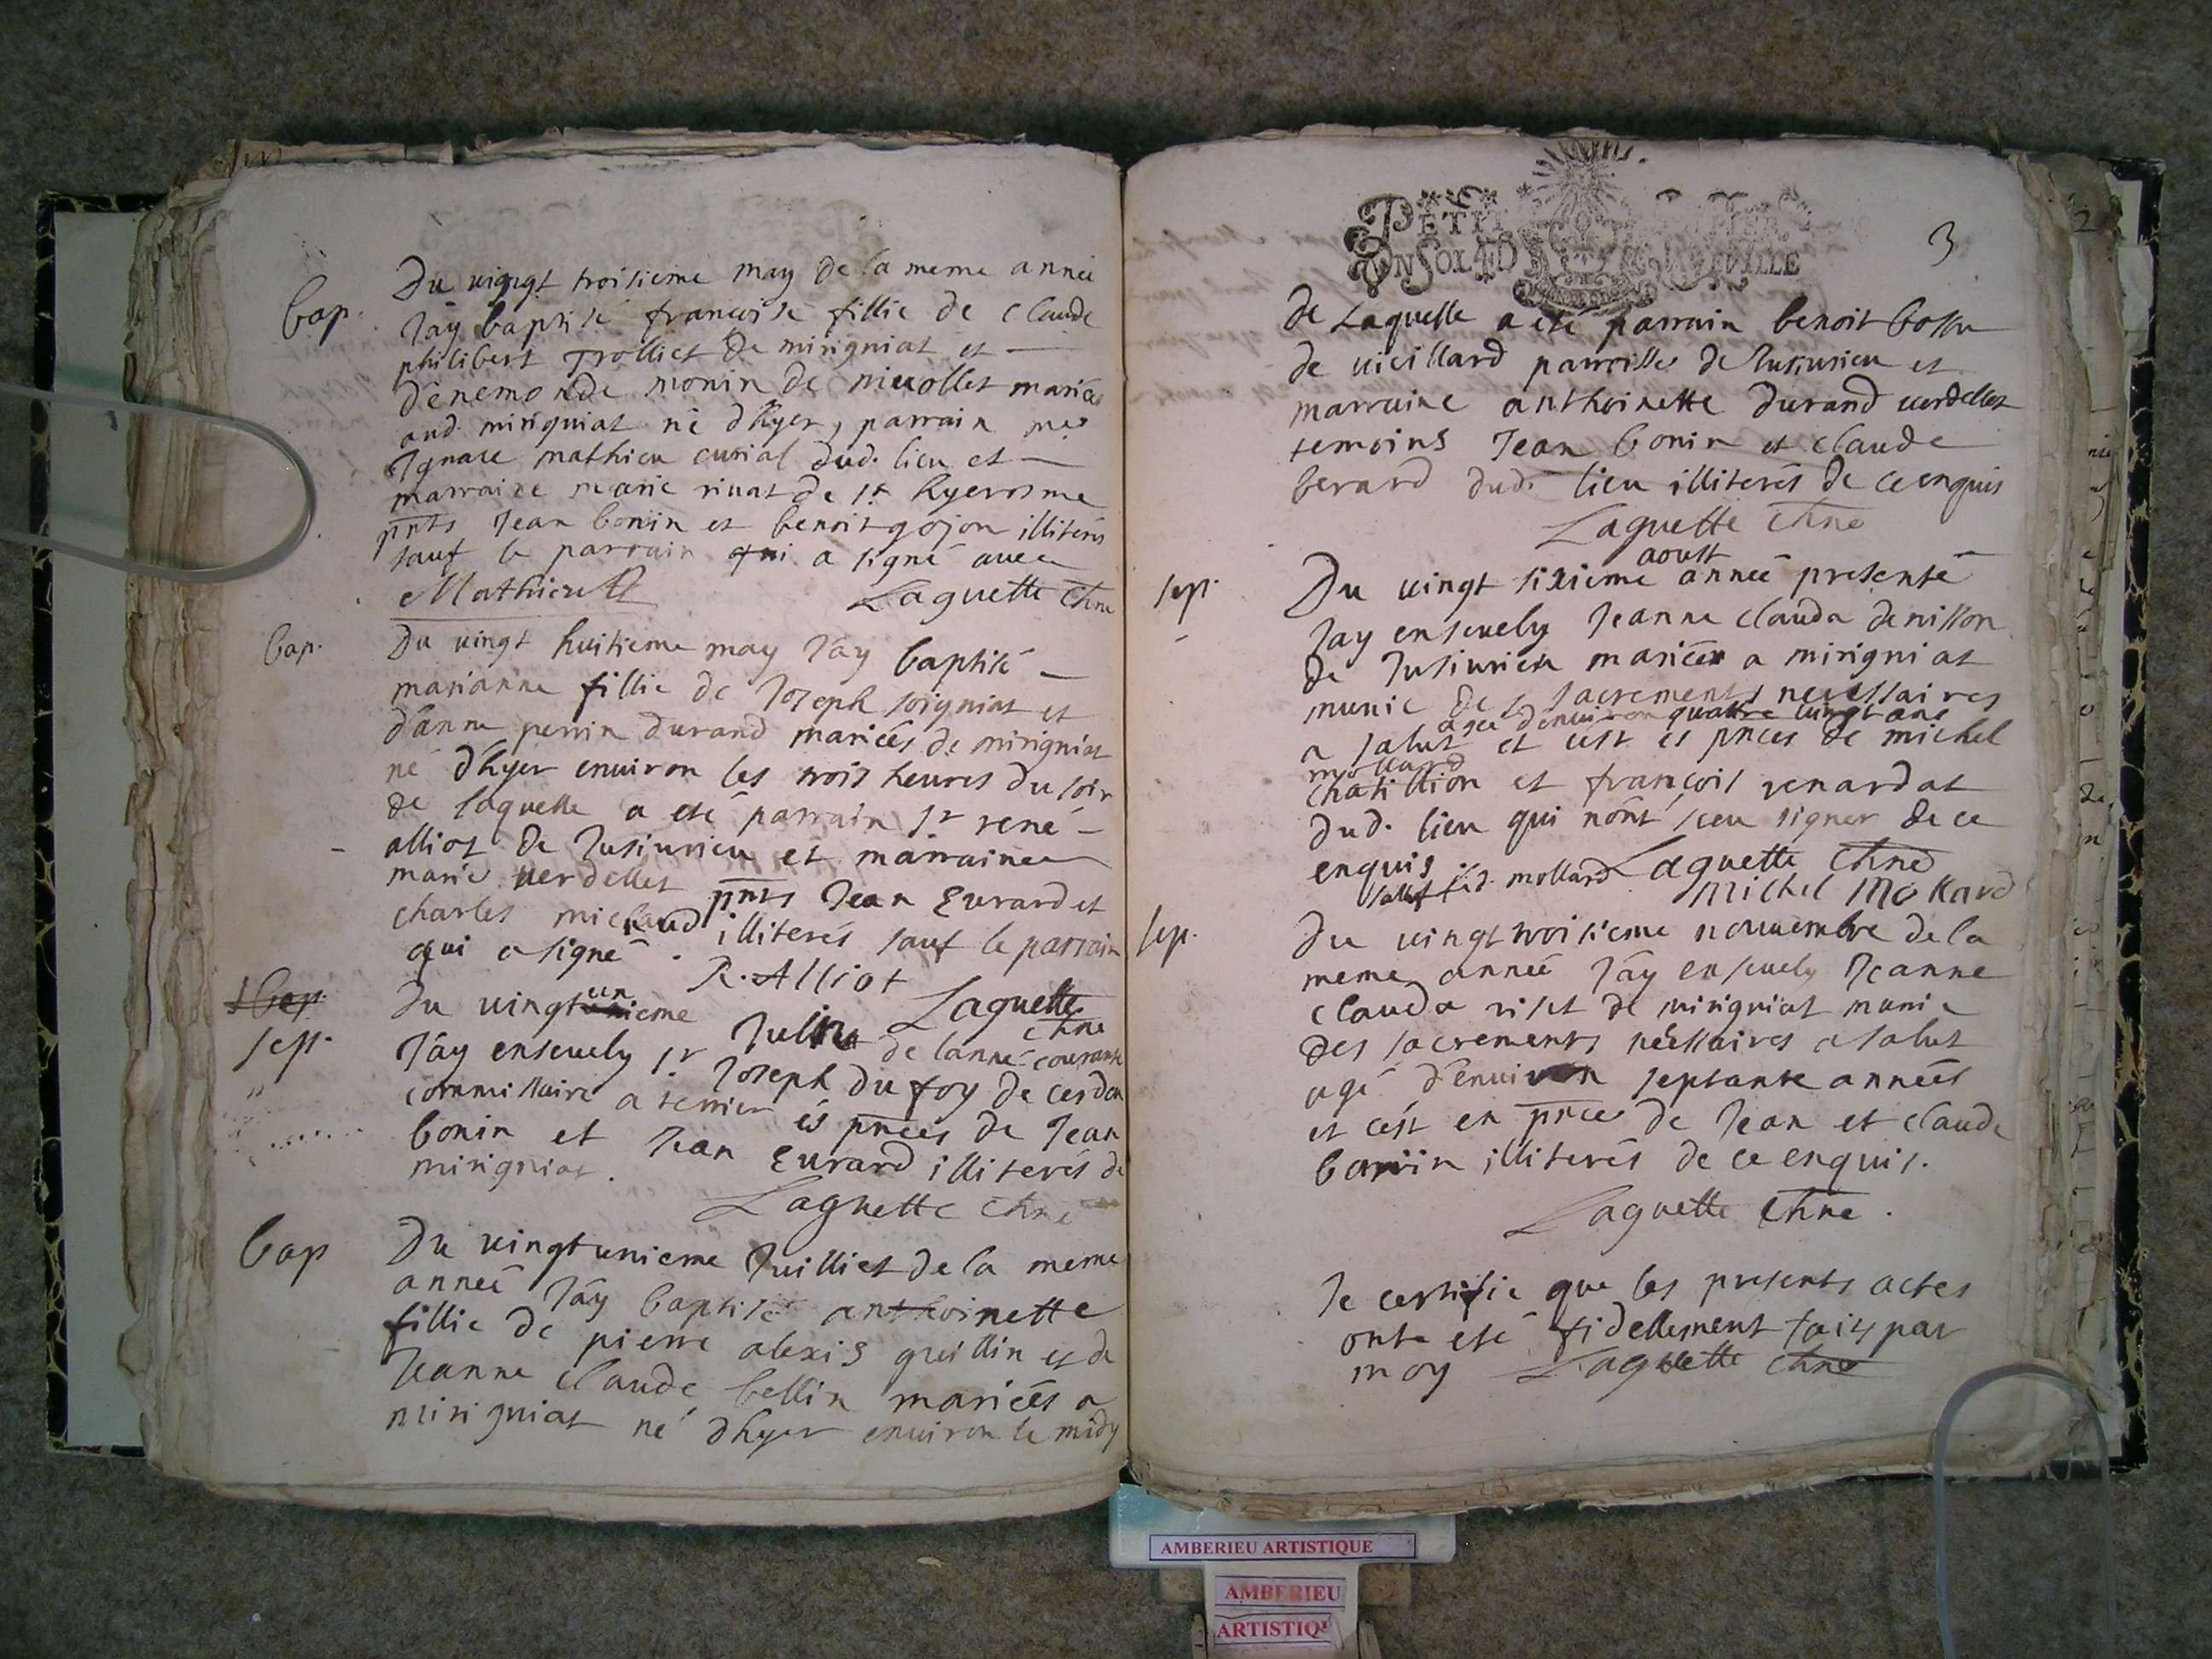 Bap.
Du vingt troisieme may de la meme anneé
J'ay baptisé francoise fillie de Claude
philibert Trolliet de mirigniat et
d'enemonde monin de nivollet mariés
aud. mirigniat né d'hyer, parrain me
Ignace mathieu curial dud. lieu et
marraine marie rivat de st hyerosme
pnts Jean bonin et benoit gojon illiterés
sauf le parrain qui a signé avec
Mathieu Laguette Chne
Bap.
Du vingt huitieme may J'ay baptisé
marianne fillie de Joseph soigniat et
d'anne perrin durand mariées de mirigniat
né d'hyer environ les trois heures du soir
de laquelle a eté parrain sr rené
alliot de Jusiurieu et marraine
marie verdellet pnts Jean Evrard et
charles michaud illiterés sauf le parrain
qui a signé. R. Alliot Laguette Chne
Bap.
sep.
Du vingt un ieme Juliet de l'anné courante
J'ay ensevely sr Joseph du foy de cerdon
commissaire a terrier és pnces de Jean
bonin et Jean Evrard illiterés de
mirigniat.
Laguette Chne
Bap
Du vingt unieme Juilliet de la meme
anneé J'ay baptisé anthoinette
fillie de pierre alexis guillin et de
Jeanne Claude bellin mariéés a
mirigniat né d'hyer environ le midy
PETIT PAPIER
UN SOL LA FEUILLE
3
de Laquelle a eté parrain benoit bossu
de vieillard parroisse de Jusiurieu et
marraine anthoinette durand verdellet
temoins Jean bonin et claude
berard dud. lieu illiterés de ce enquis
Laguette Chne
sep.
aoust
Du vingt sixieme anneé presente
J'ay ensevely Jeanne Clauda denisson
de Jusiurieu mariée a mirigniat
munie des sacrements necessaires
ageé d'environ quatre vingt ans
a salut et c'est és pnces de michel
mollard
chatillion et francois renardat
dud. lieu qui n'ont sceu signer de ce
enquis sauf led. mollard Laguette Chne
Michel Mollard
sep.
Du vingt troisieme nouvembre de la
meme anneé J'ay ensevely Jeanne
Clauda riset de mirigniat munie
des sacrements néessaires a salut
agé d'environ septante anneés
et c'est en pnce de Jean et claude
bonin illiterés de ce enquis.
Laguette Chne.
Je certifie que les presents actes
onte eté fidellement fait par
moy Laguette Chne
AMBERIEU ARTISTIQUE
AMBERIEU
ARTISTIQU